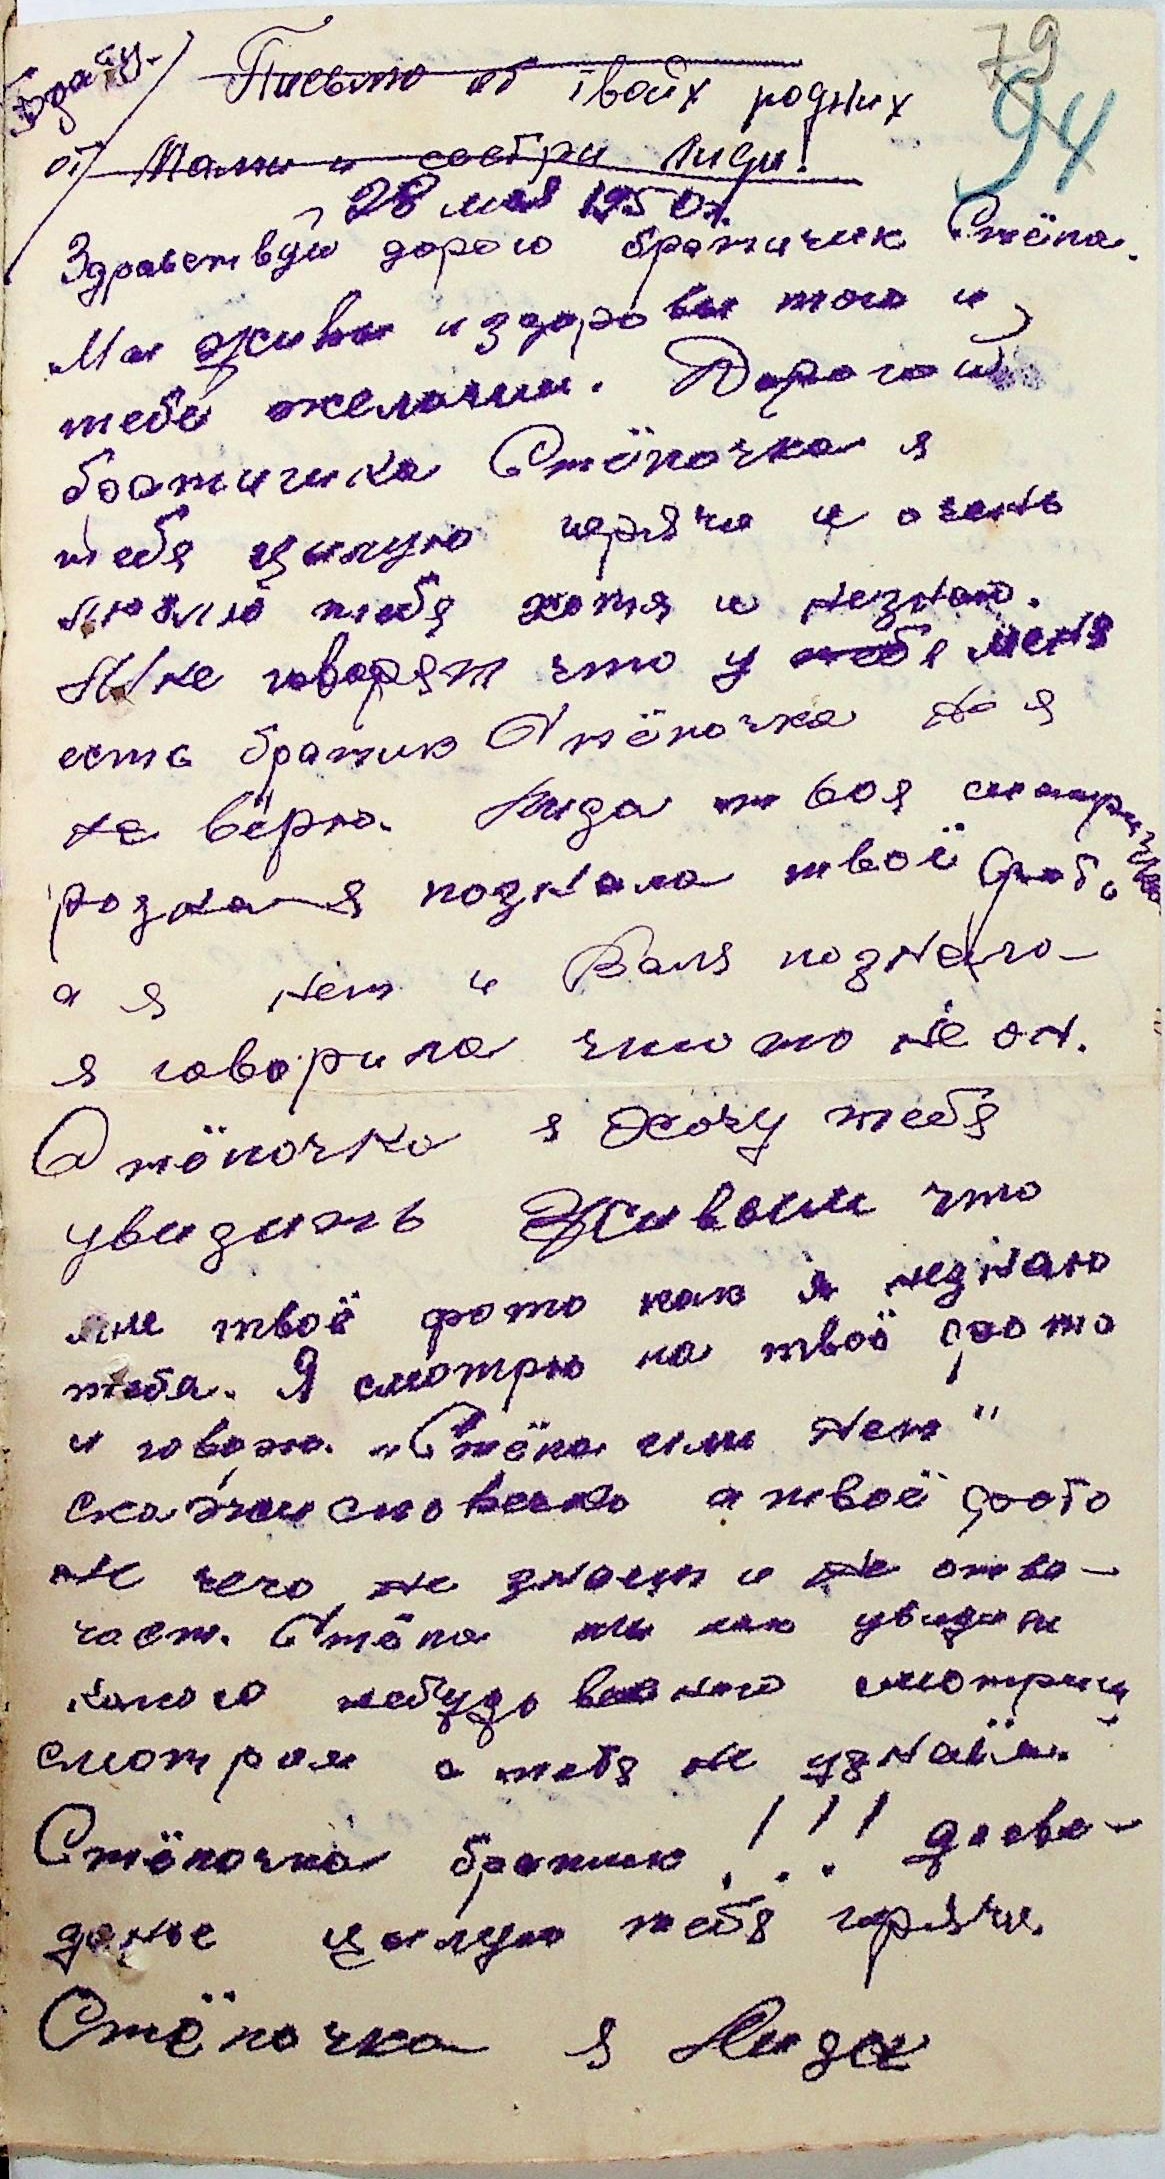 79
94
Брату.
Письмо от твоих родних
от Мами и сестри Лиди!
28 мая 1950 г.
Здравствуй дорого братичик Стёпа.
Ми живи и здорови того и
тебе желаим. Дорогой
братичика Стёпочка я
тебя цилую иряче и очень
люблю тебя хотя и незнаю.
Мне говорят что у тебя меня
есть братик Стёпочка но я
не вёрю. Лида твоя
родная познала твоё фото
а я нет и Валя познала
я говорила что то не он.
Стёпочка я хочу тебя
увидить Живым что
мне твоё фото как я незнаю
тебя. Я смотрю на твоё фото
и говорю. „Стёпа или нет"
скажи словечко а твоё фото
не чего не знает и не отве-
чает. Стёпа ми как увидим
какого небудь смотрим
смотрим а тебя не узнаём.
Стёпочка братик!!! досве-
данье цилую тебя гаряче.
Стёпочка я Лида